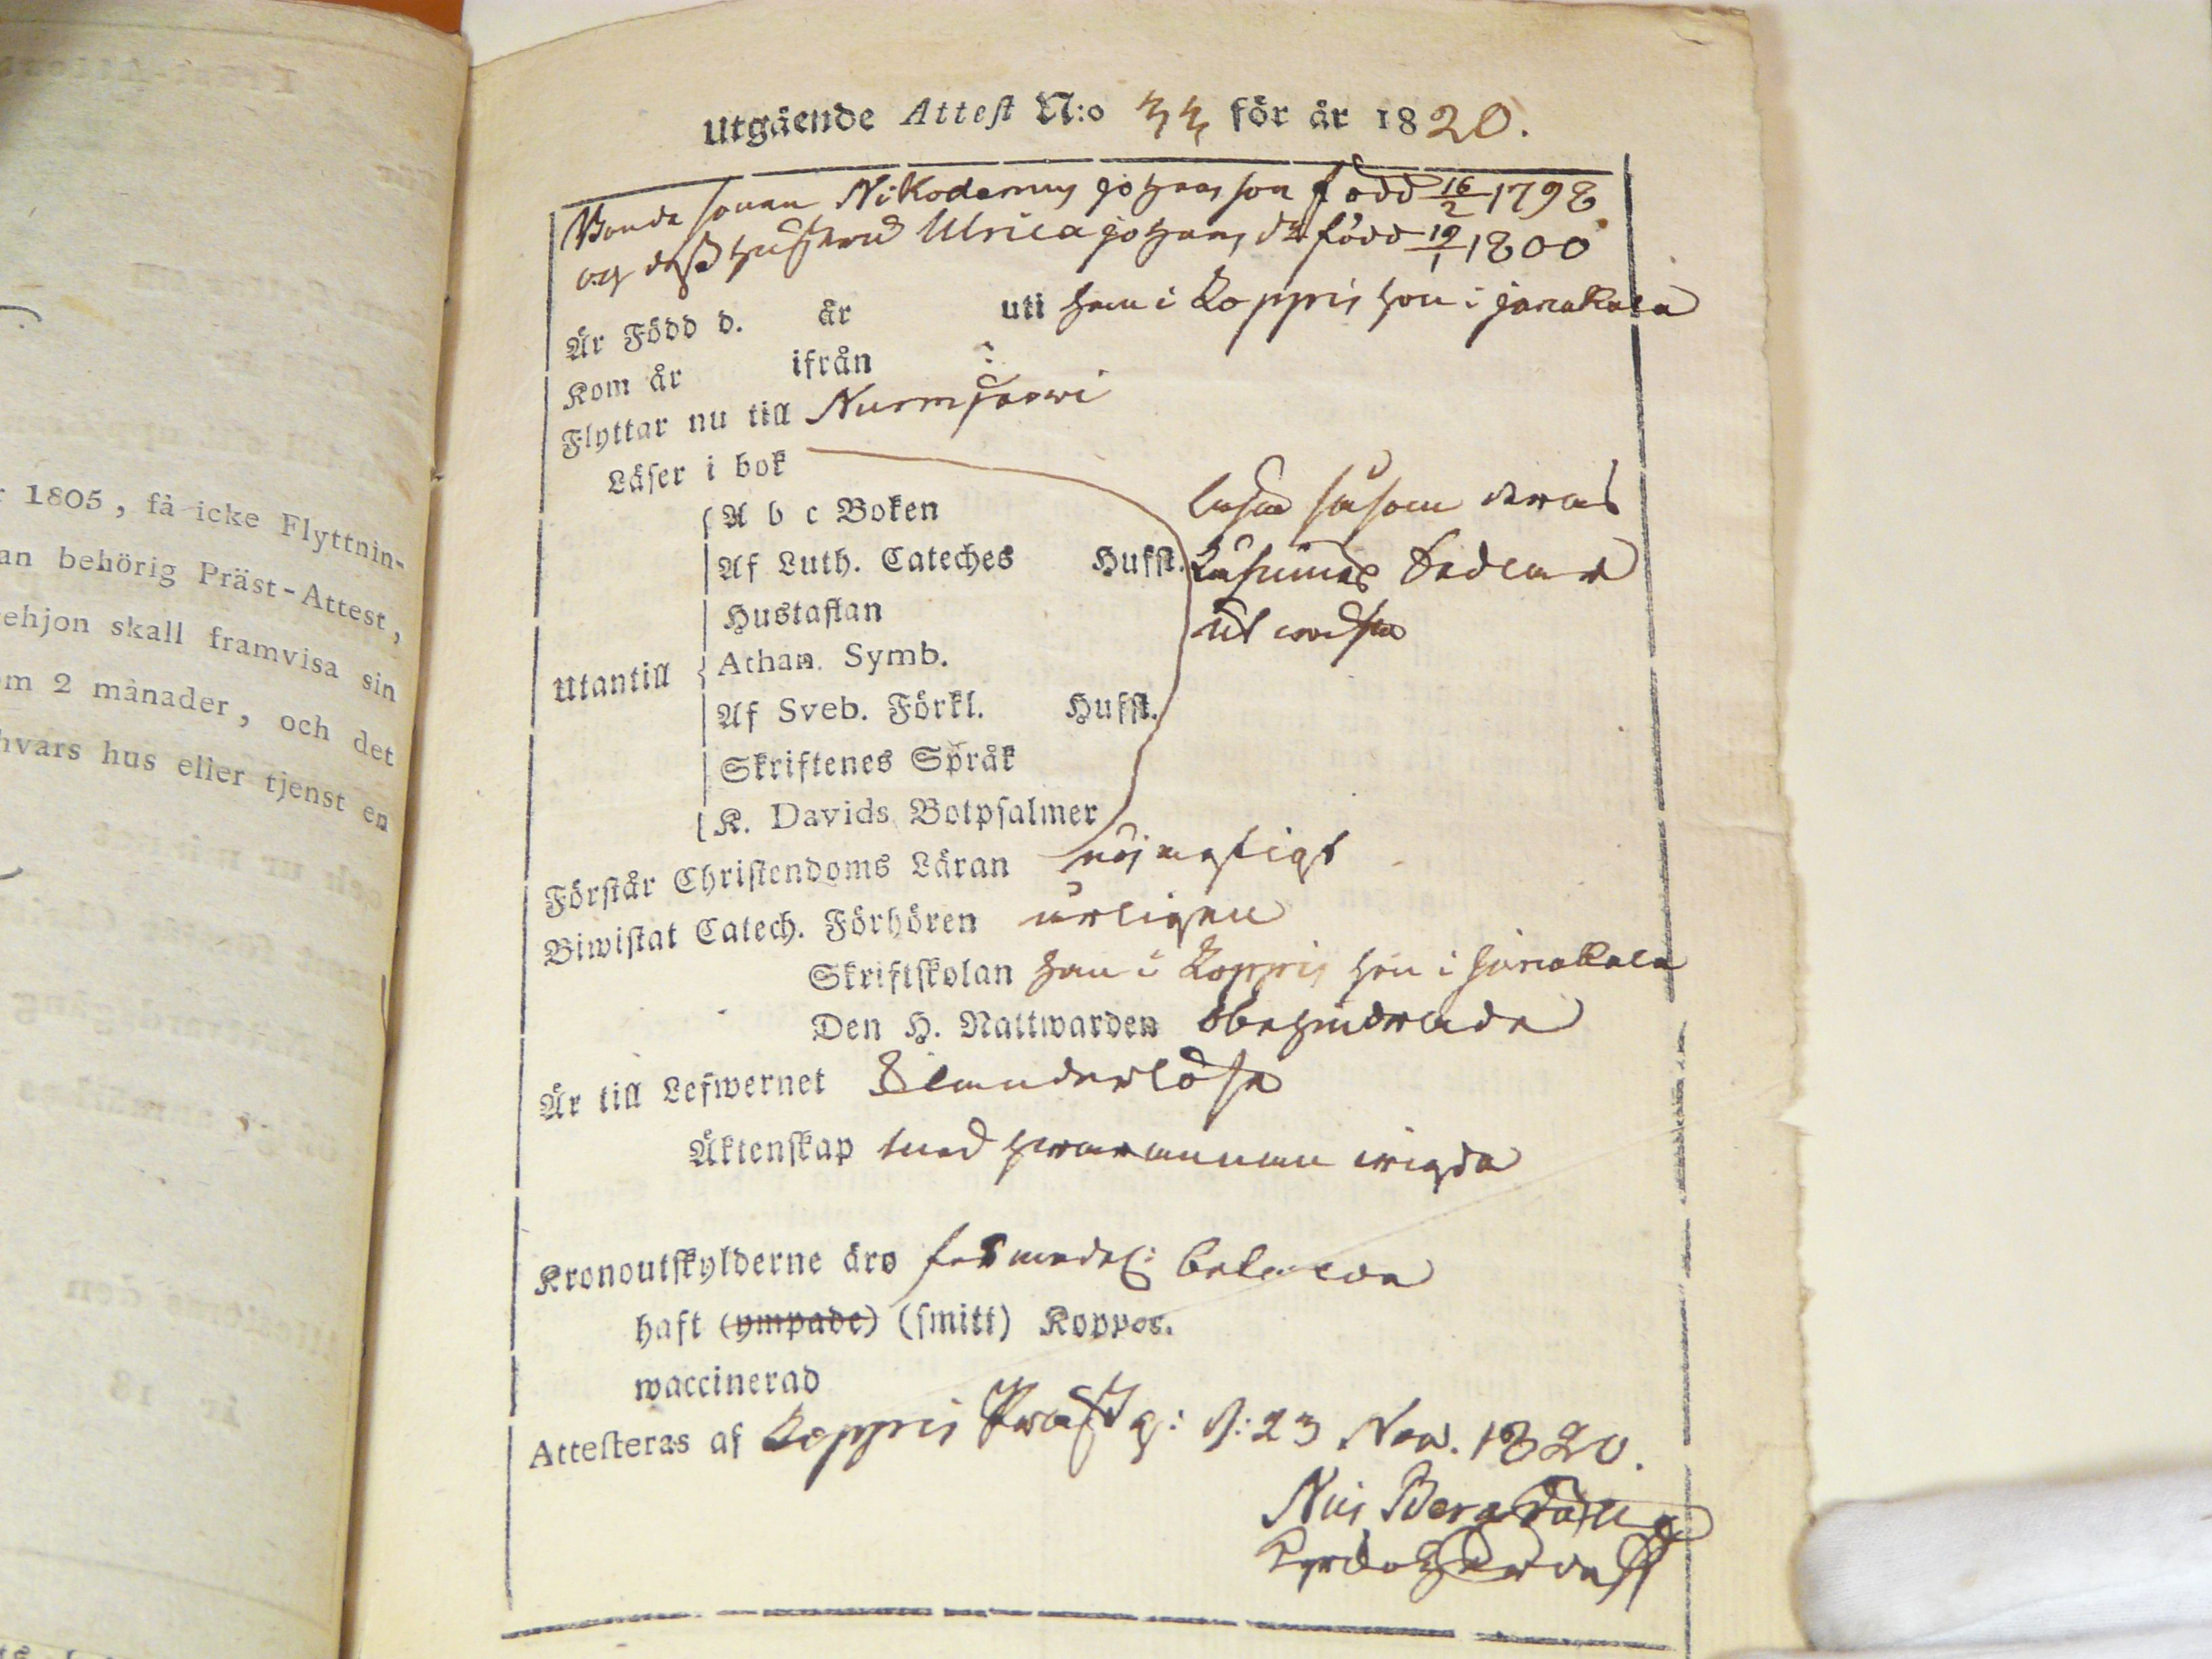 r 1805, få icke Flyttnin-
an behörig Präst-Attest,
ehjon skall framvisa sin
om 2 månader, och det
hvars hus eller tjenst en
Utgående Attest N:o 33 för år 1820.
Bonde sonen Nikodemus Johansson född 16/2 1798
och dess hustru Ulrica Johans dr född 19/1 1800
Är Född d. år uti han i Koppis hon i Janakala
Kom år ifrån
Flyttar nu till Nurmijerwi
Läser i bok
Utantill
A b c Boken
Af Luth. Cateches Hufst.
Hustaflan
Athan. Symb.
Af Sveb. Förkl. Hufst.
Skriftenes Språk
K. Davids Botpsalmer
läsa såsom deras
Läsnings Sedlar
utwisa
Förstår Christendoms Läran nöjagtigt
Biwistat Catech. Förhören årligen
Skriftskolan han i Koppis hon i Janakala
Den H. Nattwarden obehindrade
Är till Lefwernet Slanderlösa
Äktenskap med hwarannan wigda
Kronoutskylderne äro betalda
haft (ympade) (smitt) Koppor.
waccinerad
Attesteras af Koppis Prästg: d: 23 Nov. 1820.
Nils Bergdahl